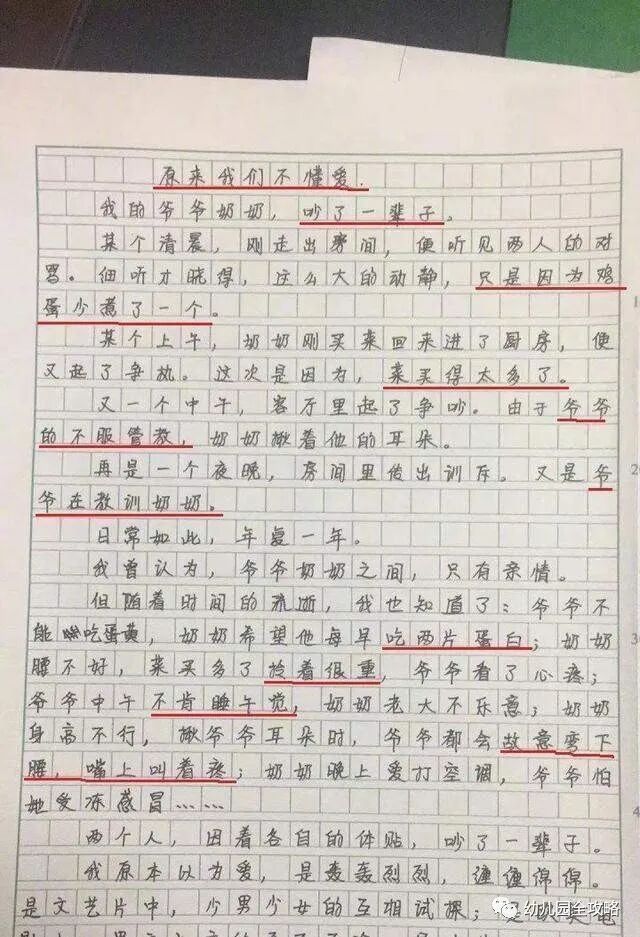 原来我们不懂爱.
我的爷爷奶奶，吵了一辈子。
某个清晨，刚走出房间，便听见两人的对
骂。细听才晓得，这么大的动静，只是因为鸡
蛋少煮了一个。
某个上午，奶奶刚买来回来进了厨房，便
又起了争执。这次是因为，菜买得太多了。
又一个中午，客厅里起了争吵。由于爷爷
的不服管教，奶奶揪着他的耳朵。
再是一个夜晚，房间里传出训斥。又是爷
爷在教训奶奶。
日常如此，年复一年。
我曾认为，爷爷奶奶之间，只有亲情。
但随着时间的流逝，我也知道了：爷爷不
能吃蛋黄，奶奶希望他每早吃两片蛋白；奶奶
腰不好，菜买多了拎着很重，爷爷看了心疼；
爷爷中午不肯睡午觉，奶奶老大不乐意；奶奶
身高不行，揪爷爷耳朵时，爷爷都会故意弯下
腰，嘴上叫着疼；奶奶晚上爱打空调，爷爷怕
她受冻感冒……
两个人，因着各自的体贴，吵了一辈子。
我原本以为爱，是轰轰烈烈，缠缠绵绵。
是文艺片中，少男少女的互相试探；是
幼儿园全攻略